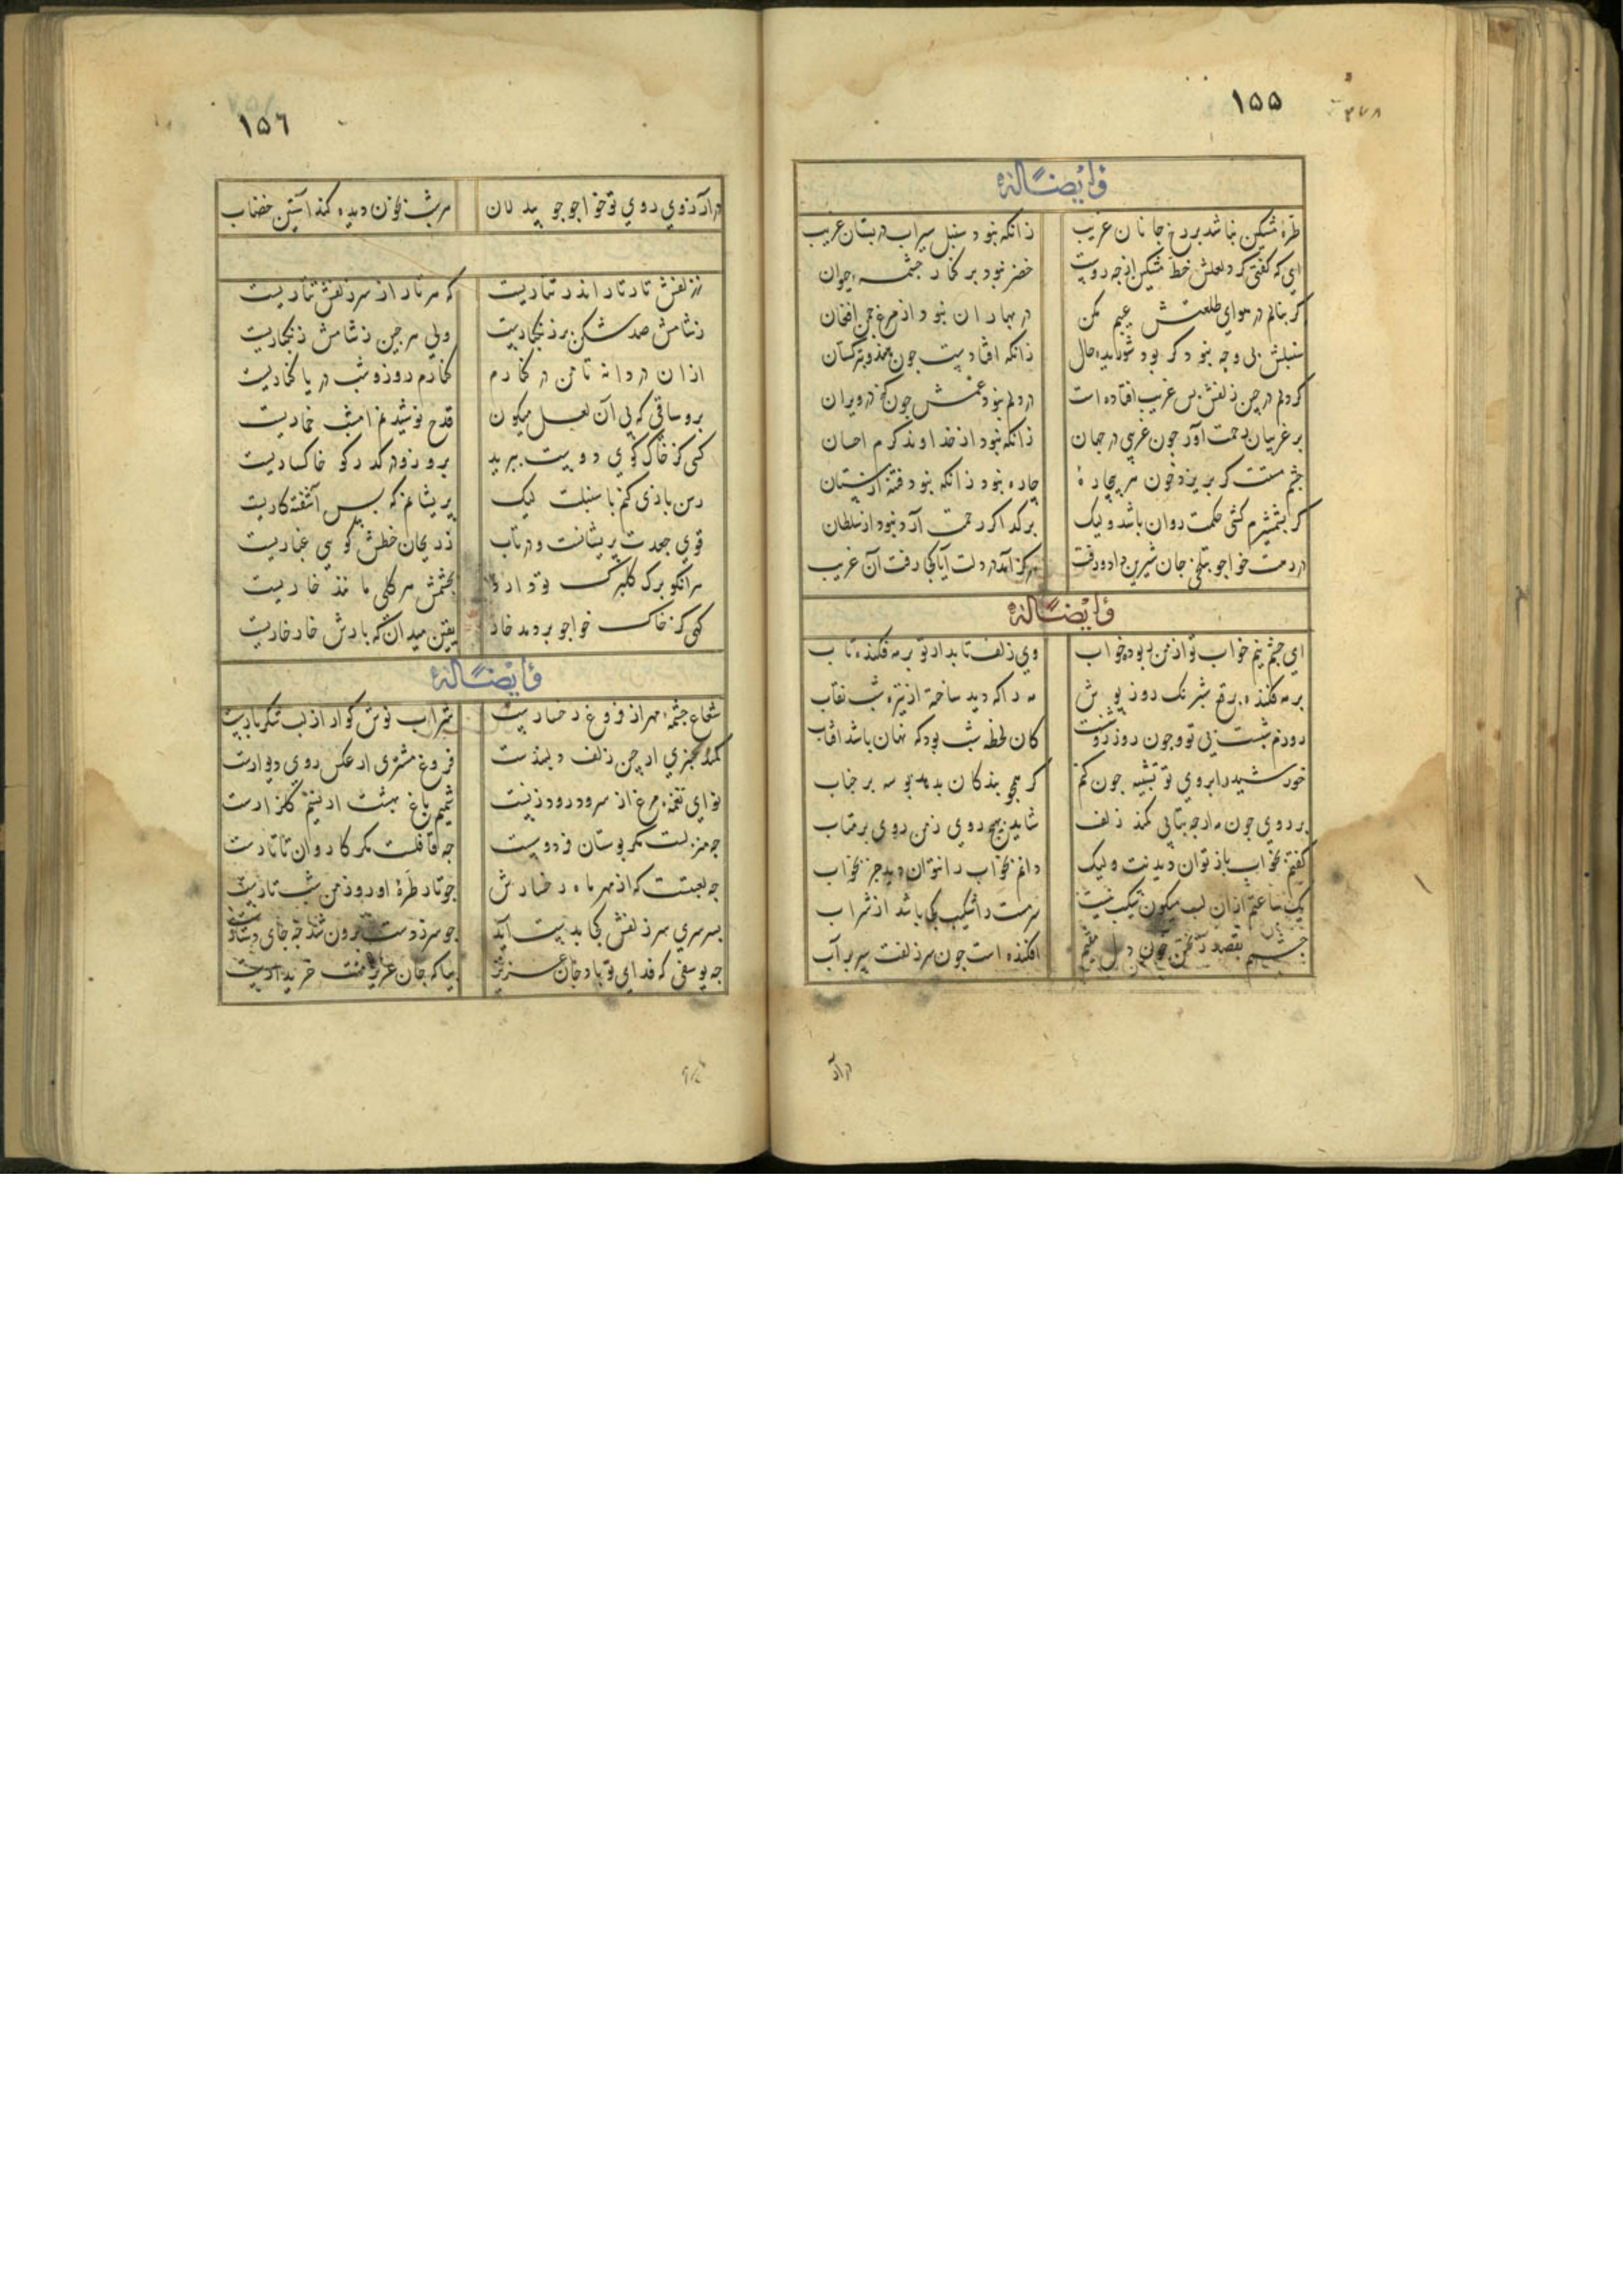 ١٥٥
وَايضًا لَهُ
طرهٔ مشکین نباشد بر رخ جانان غریب	زانکه نبود سنبل سیراب در بستان غریب
ای که گفتی کرد لعلش خط مشکین از چه روست	خضر نبود بر کنار چشمهٔ حیوان
گر بنالم در هوای طلعتش عیبم مکن	در بهاران نبود از مرغ چمن افغان
سنبلش بی وجه نبود گر بود شوریده حال	زانکه افتادست چون هندو بترکستان
گر دلم در چین زلفش بس غریب افتاده است	در دلم نبود غمش چون گنج در ویران
بر غریبان رحمت آور چون غریبی در جهان	زانکه نبود از خداوند کرم احسان
چشم مستت گر بریزد خون هر بیچارهٔ	چاره نبود زانکه نبود فتنه از مستان
گر بشمشیرم کشی حکمت روان باشد ولیک	بر گدا گر رحمت آرد نبود از سلطان
در رهت خواجو بتلخی جان شیرین داد و رفت	هرگز آمد در دلت آیا کجا رفت آن غریب
وَايضًا لَهُ
ای چشم نیم خواب تو از من ربوده خواب	وی زلف تابدار تو بر مه فکنده تاب
بر مه فکنده برقع شبرنگ روز پوش	مه را که دید ساخته از تیره شب نقاب
روزم شبست بی تو و چون روز روشنست	کان لحظه شب بود که نهان باشد افتاب
خورشید را بروی تو تشبیه چون کنم	کو همچو بندگان بدهد بوسه بر جناب
بر روی چون مه ار چه بتابی کمند زلف	شاید بهیچ روی ز من روی بر متاب
گفتم بخواب باز توان دیدنت ولیک	دانم بخواب را نتوان دید جز بخواب
یک ساعتم از ان لب میگون شکیب نیست	سرمست را شکیب کجا باشد از شراب
چشمم بقصد ریختن خون دل مقیم	افکنده است چون سر زلفت سپر بر آب
در آر
١٥٦
در آرزوی روی تو خواجو چو بیدلان	هر شب بخون دیده کند آستین خضاب
ز زلفش تار تار اندر تتاریست	که هر تار از سر زلفش تتاریست
ز شامش صد شکن بر زنگباریست	ولی هر چین ز شامش زنگباریست
از ان دردانه تا من در کنارم	کنارم روز و شب دریا کناریست
برو ساقی که بی آن لعل میگون	قدح نوشیدنم امشب خماریست
کسی کز خاک کوی دوست ببرید	برو زو در گذر کو خاکساریست
رسن بازی کنم با سنبلت لیک	پریشانم که بس آشفته کاریست
قوی جعدت پریشانست و در تاب	ز ریحان خطش گویی غباریست
هر آنکو برگ گلبرگ تو دارد	بچشمش هر گلی مانند خاریست
گلی کز خاک خواجو بر دمد خار	یقین میدان که بارش خار خاریست
وَايضًا لَهُ
شعاع چشمهٔ مهر از فروغ رخسارست	شراب نوش گوار از لب شکر بارست
کمند عنبری از چین زلف دلبندست	فروغ مشتری از عکس روی دیدارست
نوای نغمهٔ مرغ از سرود رود زنست	شمیم باغ بهشت از نسیم گلزارست
چه منزلست مگر بوستان فردوسست	چه قافلست مگر کاروان تاتارست
چه لعبتست که از مهر ماه رخسارش	چو تار طرهٔ او روز من شب تارست
بسرسری سر زلفش کجا بدست آید	چو سر ز دست برون شد چه جای دستارست
چه یوسفی که فدای تو باد جان عزیز	بیا که جان عزیزمنت خریدارست